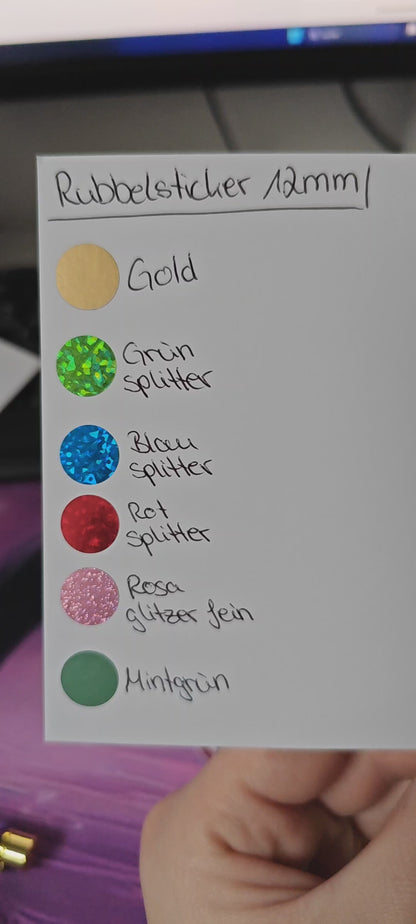 Rubbelsticker 12mm
Gold
Grün
splitter
Blau
splitter
Rot
Splitter
Rosa
glitzer fein
Mintgrün